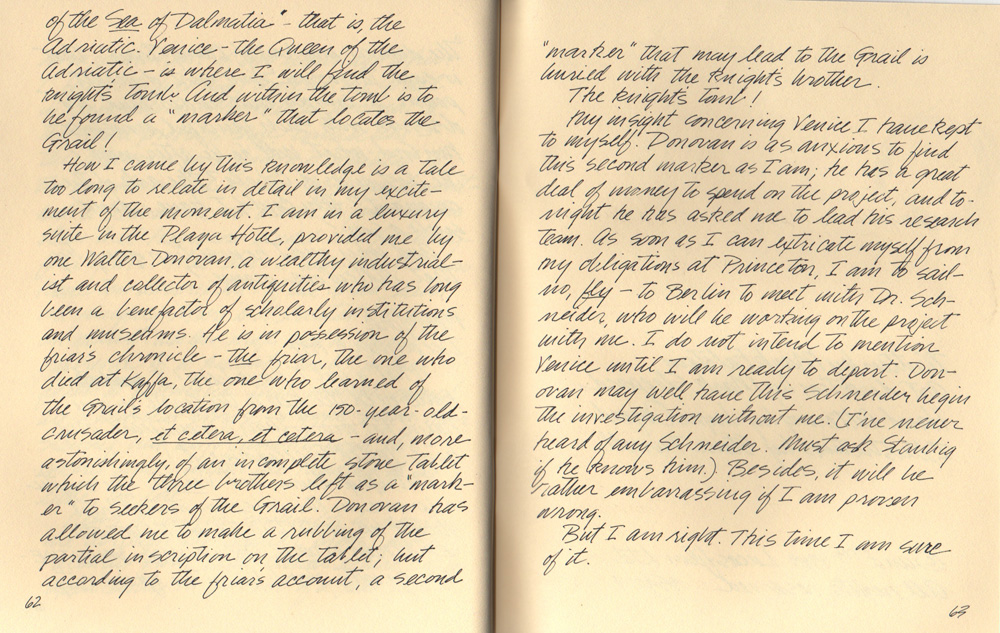 of the Sea of Dalmatia" - that is, the
Adriatic. Venice - the Queen of the
Adriatic - is where I will find the
knight's tomb. And within the tomb is to
be found a "marker" that locates the
Grail!
How I came by this knowledge is a tale
too long to relate in detail in my excite-
ment of the moment. I am in a luxury
suite in the Playa Hotel, provided me by
one Walter Donovan, a wealthy industrial-
ist and collector of antiquities who has long
been a benefactor of scholarly institutions
and museums. He is in possession of the
friar's chronicle - the friar, the one who
died at Kaffa, the one who learned of
the Grail's location from the 150-year-old-
crusader, et cetera, et cetera - and, more
astonishingly, of an incomplete stone tablet
which the three brothers left as a "mark-
er" to seekers of the Grail. Donovan has
allowed me to make a rubbing of the
partial inscription on the tablet; but
according to the friar's account, a second
62
"marker" that may lead to the Grail is
buried with the knight's brother.
The knight's tomb!
My insight concerning Venice I have kept
to myself. Donovan is as anxious to find
this second marker as I am; he has a great
deal of money to spend on the project, and to-
night he has asked me to lead his research
team. As soon as I can extricate myself from
my obligations at Princeton, I am to sail-
no, fly - to Berlin to meet with Dr. Sch-
neider, who will be working on the project
with me. I do not intend to mention
Venice until I am ready to depart. Don-
ovan may well have this Schneider begin
the investigation without me. (I've never
heard of any Schneider. Must ask Stanbig
if he knows him.) Besides, it will be
rather embarrassing if I am proven
wrong.
But I am right. This time I am sure
of it.
63